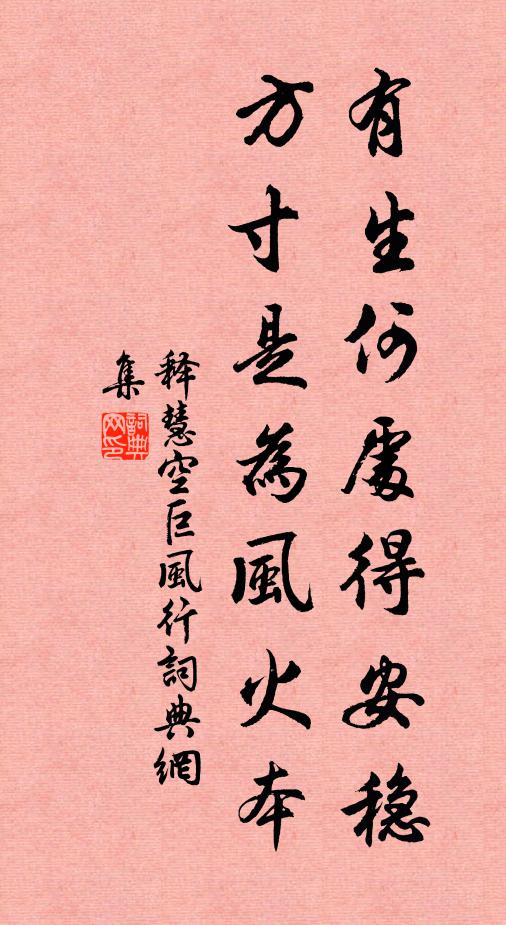 有生何處得安穩
方寸是為風火本
释慧空巨風行詞典網
集
詞典
网印